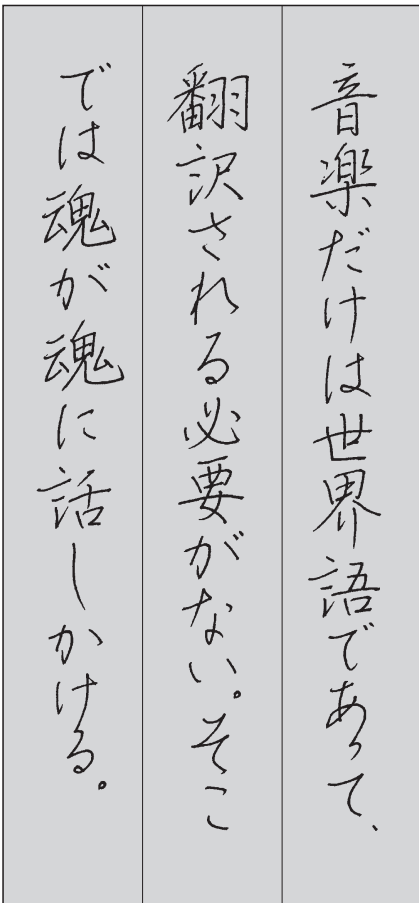 音楽だけは世界語であって、
翻訳される必要がない。そこ
では魂が魂に話しかける。